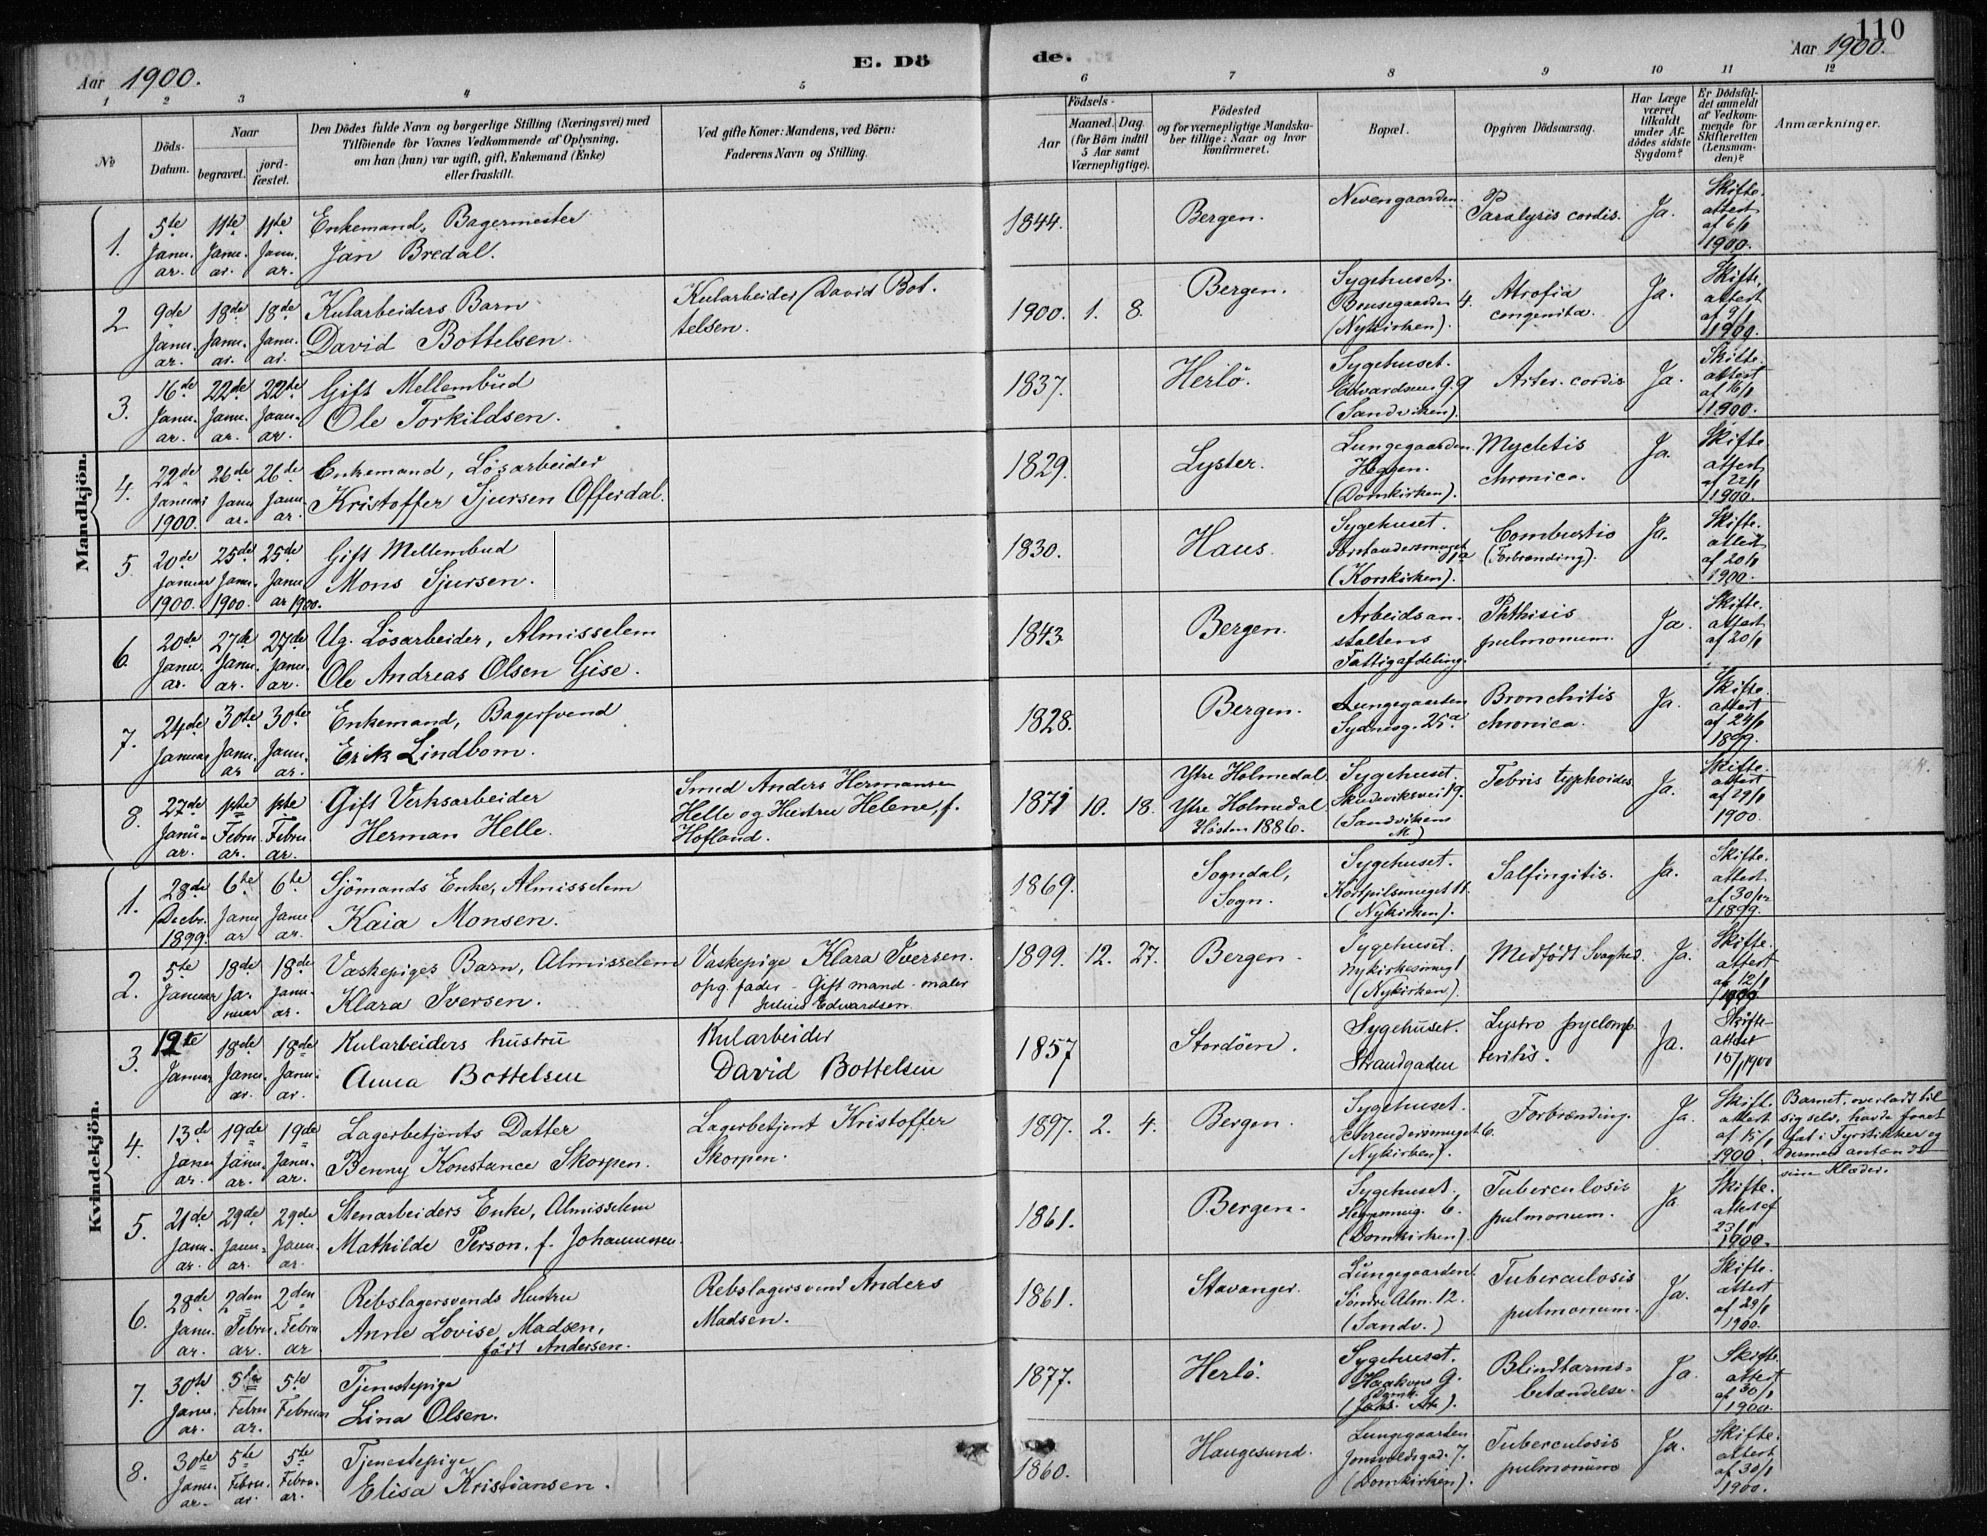 110
Aar 1900.
E. Döde.
Aar 1900.
1 2 3 4 5 6 7 8 9 10 11 12
No
Döds-Datum.
Naar
begravet.
jordfæstet.
Den Dödes fulde Navn og borgerlige Stilling (Næringsvei) med
Tilföiende for Voxnes Vedkommende af Oplysning,
om han (hun) var ugift, gift, Enkemand (Enke)
eller fraskilt.
Ved gifte Koner: Mandens, ved Börn:
Faderens Navn og Stilling.
Födsels-
Aar
Maaned. Dag.
(for Börn indtil
5 Aar samt
Værnepligtige).
Födested
og for værnepligtige Mandska-
ber tillige: Naar og hvor
konfirmeret.
Bopæl.
Opgiven Dödsaarsag.
Har Læge
været
tilkaldt
under Af-
dödes sidste
Sygdom?
Er Dödsfal-
det anmeldt
af Vedkom-
mende for
Skifteretten
(Lensman-
den)?
Anmærkninger.
Mandkjön.
1. 5te Januar. 11te Januar. 11te Januar. Enkemand, Bagermester
Jan Bredal.
1844. Bergen. Nevengaarden. Paralysis cordis. Ja. Skifte-attest af 6/1 1900.
2 9de Januar. 18de Januar. 18de Januar. Kularbeiders Barn
David Bottelsen.
Kularbeider David Bot-
telsen.
1900. 1. 8. Bergen. Sygehuset. 4. (Nykirken). Atrofia congenita. Ja. Skifte-attest af 9/1 1900.
3. 16de Januar. 22de Januar. 22te Januar. Gift Mellembud
Ole Torkildsen.
1837. Herlö. Sygehuset. Edvardsens G. 9 (Sandviken). Arter. cordis Ja. Skifte-attest af 16/1 1900.
4. 22de Januar 1900. 26de Januar. 26de Januar. Enkemand, Lösarbeider
Kristoffer Sjursen Offerdal.
1829. Lyster. Lungegaarden. Heggen. (Domkirken). Myelitis chronica. Ja. Skifte-attest af 22/1 1900.
5. 20de Januar 1900. 25de Janu. 1900. 25de Januar 1900. Gift Mellembud
Mons Sjursen.
1830. Haus. Sygehuset. (Korskirken). Combustio (Forbrending). Ja. Skifte-attest af 20/1 1900.
6. 20de Januar. 27de Januar. 27de Januar. Ug. Lösarbeider, Almisselem
Ole Andreas Olsen Gise.
1843. Bergen. Arbeidsan-staltens Fattigafdeling. Phthisis pulmonum. Ja. Skifte-attest af 20/1
7. 24de Januar 30te Januar 30te Januar. Enkemand, Bagersvend
Erik Lindbom.
1828. Bergen. Lungegaarden Sydnesg. 25a Bronchitis chronica. Ja. Skifte-attest af 24/1 1899.
8. 27de Januar. 1ste Februar. 1ste Februar. Gift Verksarbeider
Herman Helle.
Smed Anders Hermansen
Helle og Hustru Helene, f.
Hofland.
1871 10. 18. Ytre Holmedal. Ytre Holmedal Hösten 1886. Sygehuset. Skudeviksvei 19. (Sandvikens M) Febris typhoides. Ja. Skifte-attest af 29/1 1900.
Kvindekjön.
1. 28de Decbr. 1899. 6te Januar 6te Januar. Sjömands Enke, Almisselem
Kaia Monsen.
1869. Sogndal, Sogn. Sygehuset. 11. (Nykirken). Salfingitis. Ja. Skifte-attest af 30/12 1899.
2. 5te Januar 18de Januar 18de Januar. Vaskepiges Barn, Almisselem
Klara Iversen.
Vaskepige Klara Iversen.
opg. fader - Gift mand - maler
Julius Edvardsen.
1899. 12. 27. Bergen. Sygehuset. Nykirkesmug 1 (Nykirken). Medfödt Svaghed. Ja. Skifte-attest af 12/1 1900
3. 12te Januar 18de Januar. 18de Januar. Kularbeiders hustru
Anna Bottelsen
Kularbeider
David Bottelsen
1857 Stordöen. Sygehuset. Strandgaden Ja. Skifte-attest 15/1 1900
4. 13de Januar. 19de Januar. 19de Januar. Lagerbetjents Datter
Benny Konstance Skorpen.
Lagerbetjent Kristoffer
Skorpen.
1897. 2. 4. Bergen. Sygehuset. 6. (Nykirken). Forbrænding. Ja. Skifte-attest af 15/1 1900.
Barnet, overladt til
sig selv, havde faaet
fat i Fyrstikker og
dermed antændt
sine Klæder.
5. 21de Januar. 29de Januar. 29de Januar. Stenarbeiders Enke, Almisselem
Mathilde Person, f. Johannesen.
1861. Bergen. Sygehuset, Heggesmug. 6. (Domkirken). Tuberculosis pulmonum. Ja. Skifte-attest af 23/1 1900.
6. 28de Januar. 2den Februar. 2den Februar Rebslagersvends Hustru
Anne Lovise Madsen,
födt Andersen.
Rebslagersvend Anders
Madsen.
1861. Stavanger. Lungegaarden. Söndre Alm. 12. (Sandv.) Tuberculosis pulmonum. Ja. Skifte-attest af 29/1 1900.
7. 30te Januar. 5te Februar. 5te Februar Tjenestepige
Lina Olsen.
1877. Herlö. Sygehuset. Haakons G. Blindtarms-betændelse. Ja. Skifte-attest af 30/1 1900.
8. 30te Januar. 5te Februar. 5te Februar. Tjenestepige
Elisa Kristiansen.
1860. Haugesund. Lungegaarden 7. (Domkirken). Tuberculosis pulmonum Ja. Skifte-attest af 30/1 1900.